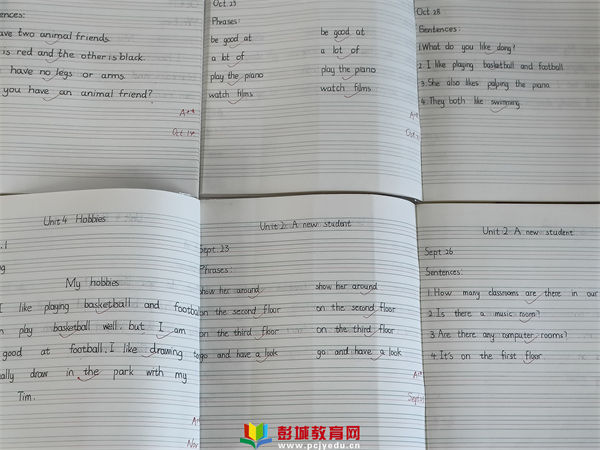 ences:
ave two animal friends.
is red and the other is black.
have no legs or arms.
you have an animal friend?
Oct. 14
Oct. 23
Phrases:
be good at be good at
a lot of a lot of
play the piano play the piano
watch films watch films
Oct. 28
Sentences:
1.What do you like dong?
2. I like playing basketball and football.
3. She also likes palying the piano.
4. They both like swimming.
Unit 4 Hobbies
My hobbies
I like playing basketball and footba
n play basketball well, but I am
good at football. I like drawing to
ally draw in the park with my
Tim.
Unit 2: A new student
Sept. 23
Phrases:
show her around show her around
on the second floor on the second floor
on the third floor on the third floor
go and have a look go and have a look
Unit 2 A new student
Sept. 26
Sentences:
1. How many classrooms are there in our
2. Is there a music room?
3. Are there any computer rooms?
4. It's on the first floor.
彭城教育网
www.pcjyedu.cn